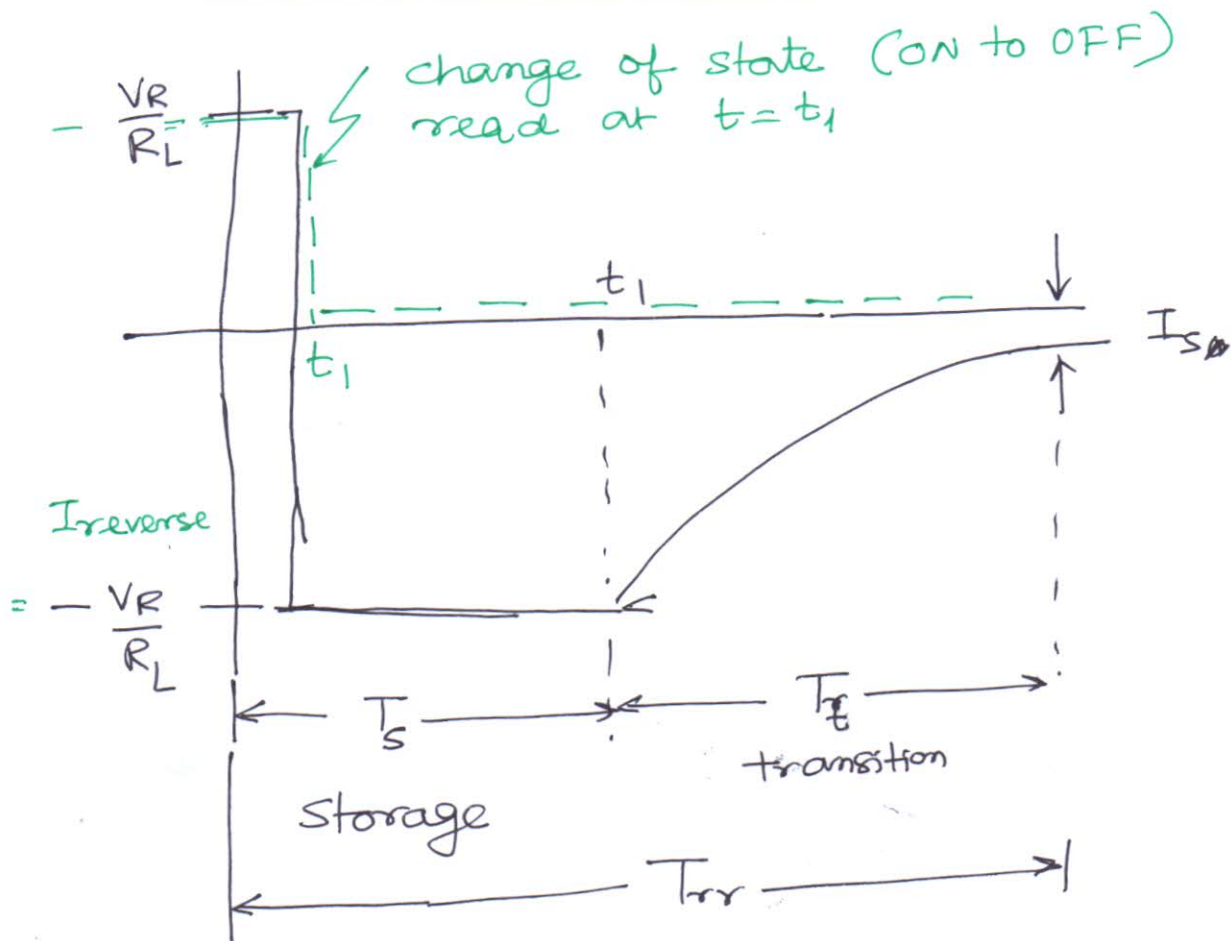 change of state (ON to OFF)
read at t = t1
- VR/RL =
t1
t1
Is
Ireverse
= - VR/RL
Ts
Tt
transition
Storage
Trr